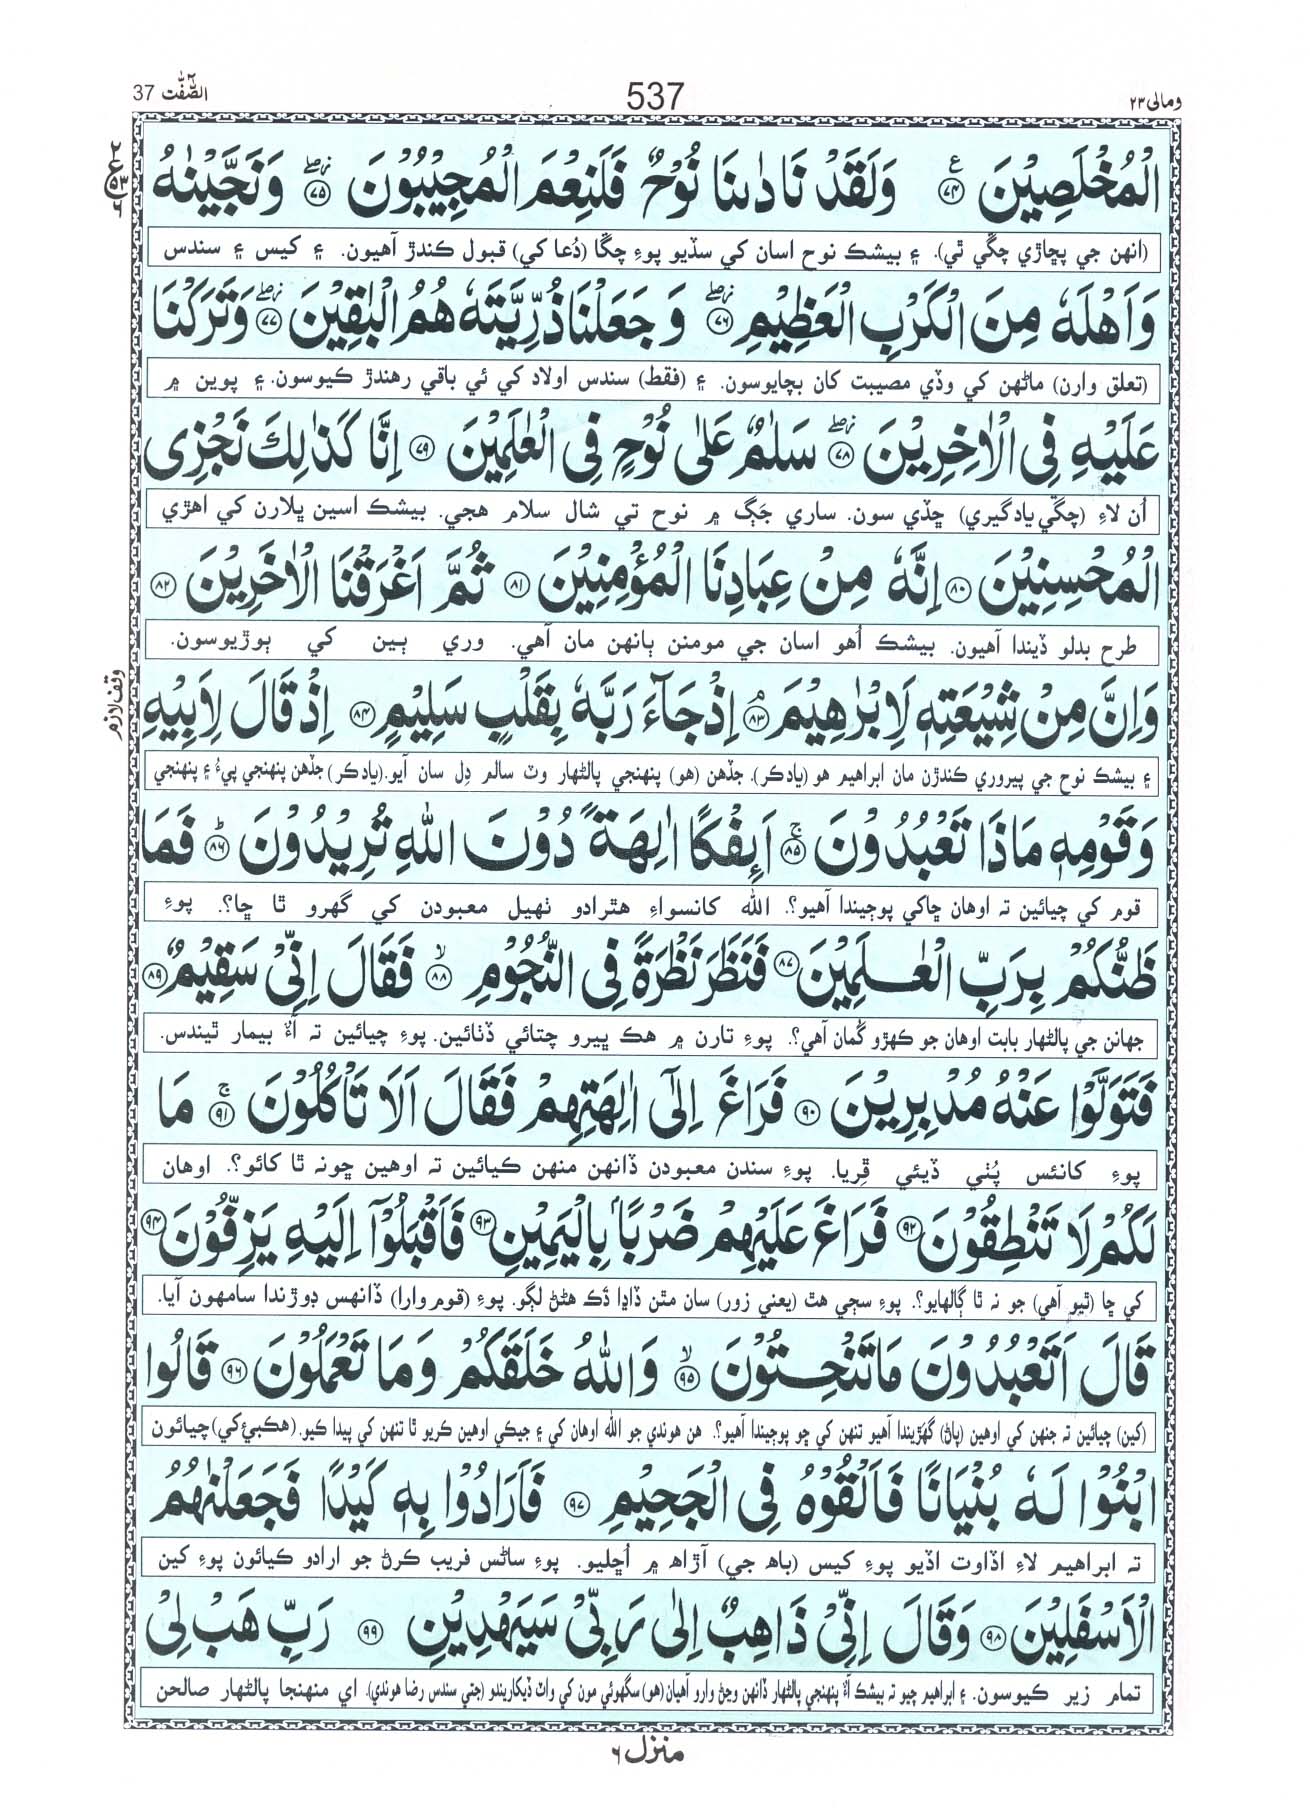 الصّٰٓفّٰت 37
537
ومالی ۲۳
الْمُخْلَصِیْنَ ﴿۷۴﴾ وَلَقَدْ نَادٰىنَا نُوْحٌ فَلَنِعْمَ الْمُجِیْبُوْنَ ﴿۷۵﴾ وَنَجَّیْنٰهُ
(انهن جي پڇاڙي چڱي ٿي). ۽ بيشڪ نوح اسان کي سڏيو پوءِ چڱا (دُعا کي) قبول ڪندڙ آهيون. ۽ کيس ۽ سندس
وَاَهْلَهٗ مِنَ الْكَرْبِ الْعَظِیْمِ ﴿۷۶﴾ وَجَعَلْنَا ذُرِّیَّتَهٗ هُمُ الْبٰقِیْنَ ﴿۷۷﴾ وَتَرَكْنَا
(تعلق وارن) ماڻهن کي وڏي مصيبت کان بچايوسون. ۽ (فقط) سندس اولاد کي ئي باقي رهندڙ ڪيوسون. ۽ پوين ۾
عَلَیْهِ فِی الْاٰخِرِیْنَ ﴿۷۸﴾ سَلٰمٌ عَلٰی نُوْحٍ فِی الْعٰلَمِیْنَ ﴿۷۹﴾ اِنَّا كَذٰلِكَ نَجْزِی
اُن لاءِ (چڱي يادگيري) ڇڏي سون. ساري جَڳ ۾ نوح تي شال سلام هجي. بيشڪ اسين ڀلارن کي اهڙي
الْمُحْسِنِیْنَ ﴿۸۰﴾ اِنَّهٗ مِنْ عِبَادِنَا الْمُؤْمِنِیْنَ ﴿۸۱﴾ ثُمَّ اَغْرَقْنَا الْاٰخَرِیْنَ ﴿۸۲﴾
طرح بدلو ڏيندا آهيون. بيشڪ اُهو اسان جي مومنن ٻانهن مان آهي. وري ٻين کي ٻوڙيوسون.
وقف لازم
وَاِنَّ مِنْ شِیْعَتِهٖ لَاِبْرٰهِیْمَ ﴿۸۳﴾ اِذْ جَآءَ رَبَّهٗ بِقَلْبٍ سَلِیْمٍ ﴿۸۴﴾ اِذْ قَالَ لِاَبِیْهِ
۽ بيشڪ نوح جي پيروري ڪندڙن مان ابراهيم هو (يادڪر). جڏهن (هو) پنهنجي پالڻهار وٽ سالم دِل سان آيو. (يادڪر) جڏهن پنهنجي پيءُ ۽ پنهنجي
وَقَوْمِهٖ مَاذَا تَعْبُدُوْنَ ﴿۸۵﴾ اَئِفْكًا اٰلِهَةً دُوْنَ اللّٰهِ تُرِیْدُوْنَ ﴿۸۶﴾ فَمَا
قوم کي چيائين ته اوهان ڇاکي پوڄيندا آهيو؟. الله کانسواءِ هٿرادو ٺهيل معبودن کي گهرو ٿا ڇا؟. پوءِ
ظَنُّكُمْ بِرَبِّ الْعٰلَمِیْنَ ﴿۸۷﴾ فَنَظَرَ نَظْرَةً فِی النُّجُوْمِ ﴿۸۸﴾ فَقَالَ اِنِّیْ سَقِیْمٌ ﴿۸۹﴾
جهانن جي پالڻهار بابت اوهان جو ڪهڙو گُمان آهي؟. پوءِ تارن ۾ هڪ ڀيرو چتائي ڏٺائين. پوءِ چيائين ته آءٌ بيمار ٿيندس.
فَتَوَلَّوْا عَنْهُ مُدْبِرِیْنَ ﴿۹۰﴾ فَرَاغَ اِلٰۤی اٰلِهَتِهِمْ فَقَالَ اَلَا تَاْكُلُوْنَ ﴿۹۱﴾ مَا
پوءِ کانئس پُٺي ڏيئي ڦِريا. پوءِ سندن معبودن ڏانهن منهن ڪيائين ته اوهين ڇونه ٿا کائو؟. اوهان
لَكُمْ لَا تَنْطِقُوْنَ ﴿۹۲﴾ فَرَاغَ عَلَیْهِمْ ضَرْبًۢا بِالْیَمِیْنِ ﴿۹۳﴾ فَاَقْبَلُوْۤا اِلَیْهِ یَزِفُّوْنَ ﴿۹۴﴾
کي ڇا (ٿيو آهي) جو نه ٿا ڳالهايو؟. پوءِ سڄي هٿ (يعني زور) سان مٿن ڏاڍا ڌَڪ هڻڻ لڳو. پوءِ (قوم وارا) ڏانهس ڊوڙندا سامهون آيا.
قَالَ اَتَعْبُدُوْنَ مَا تَنْحِتُوْنَ ﴿۹۵﴾ وَاللّٰهُ خَلَقَكُمْ وَمَا تَعْمَلُوْنَ ﴿۹۶﴾ قَالُوا
(کين) چيائين ته جنهن کي اوهين (پاڻ) گهڙيندا آهيو تنهن کي ڇو پوڄيندا آهيو؟. هن هوندي جو الله اوهان کي ۽ جيڪي اوهين ڪريو ٿا تنهن کي پيدا ڪيو. (هڪٻيءَ کي) چيائون
ابْنُوْا لَهٗ بُنْیَانًا فَاَلْقُوْهُ فِی الْجَحِیْمِ ﴿۹۷﴾ فَاَرَادُوْا بِهٖ كَیْدًا فَجَعَلْنٰهُمُ
ته ابراهيم لاءِ اڏاوت اڏيو پوءِ کيس (باهه جي) آڙاهه ۾ اُڇليو. پوءِ ساڻس فريب ڪرڻ جو ارادو ڪيائون پوءِ کين
الْاَسْفَلِیْنَ ﴿۹۸﴾ وَقَالَ اِنِّیْ ذَاهِبٌ اِلٰی رَبِّیْ سَیَهْدِیْنِ ﴿۹۹﴾ رَبِّ هَبْ لِیْ
تمام زير ڪيوسون. ۽ ابراهيم چيو ته بيشڪ آءٌ پنهنجي پالڻهار ڏانهن وڃڻ وارو آهيان (هو) سگهوئي مون کي واٽ ڏيکاريندو (جتي سندس رضا هوندي). اي منهنجا پالڻهار صالحن
منزل ۶